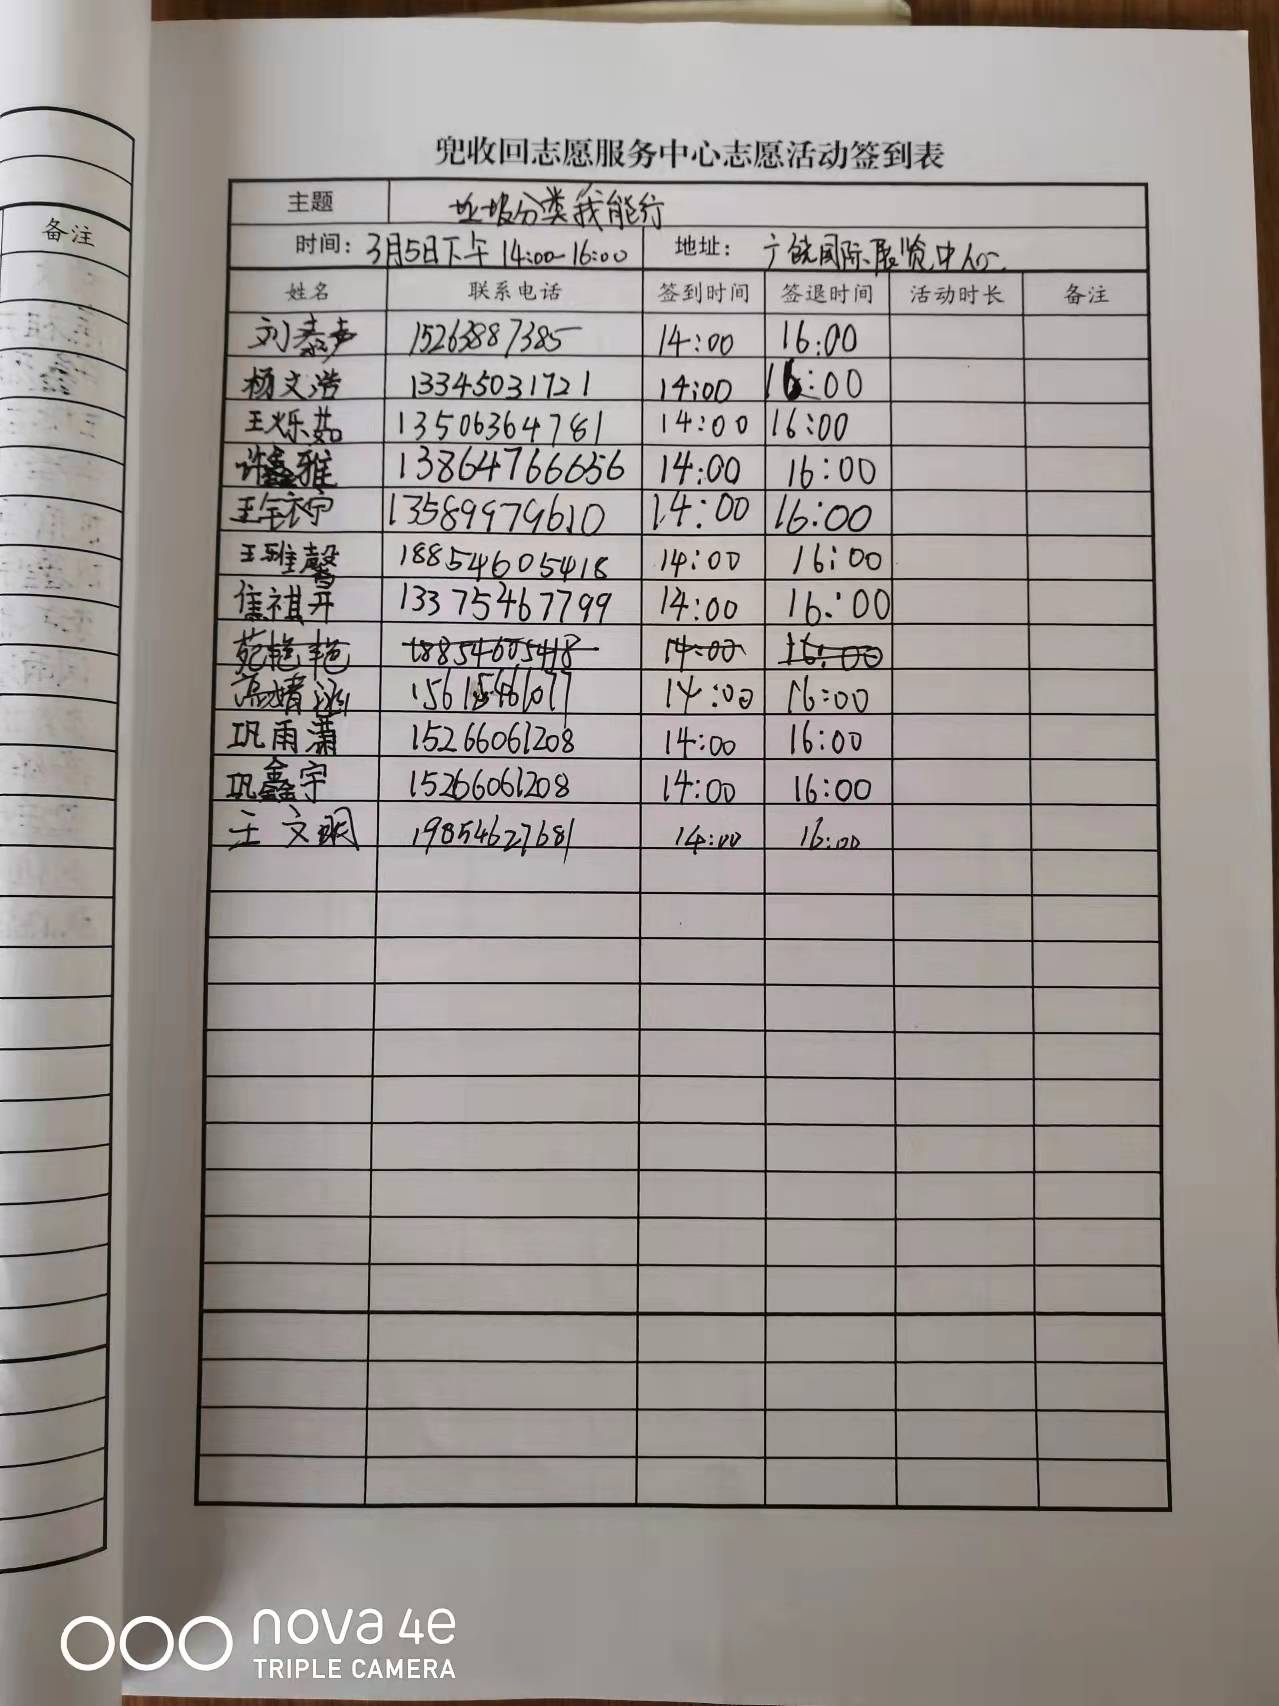 备注
兜收回志愿服务中心志愿活动签到表
主题 垃圾分类我能行
时间: 3月5日下午 14:00-16:00 地址: 广饶国际展览中心
姓名 联系电话 签到时间 签退时间 活动时长 备注
刘泰声 15263887385 14:00 16:00
杨文浩 13345031721 14:00 16:00
王烁茹 13506364781 14:00 16:00
许鑫雅 13864766656 14:00 16:00
王 宁 13589979610 14:00 16:00
王雅馨 18854605418 14:00 16:00
焦祺开 13375467799 14:00 16:00
苑艳艳 18854605418 14:00 16:00
高婧涵 14:00 16:00
巩雨潇 15266061208 14:00 16:00
巩鑫宇 15266061208 14:00 16:00
王文明 19854627681 14:00 16:00
nova 4e
TRIPLE CAMERA